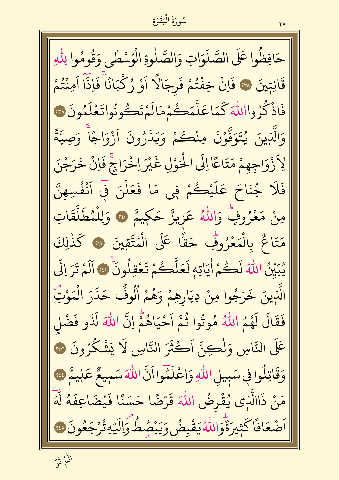 سُورَةُ الْبَقَرَةِ
حَافِظُوا عَلَى الصَّلَوَاتِ وَالصَّلٰوةِ الْوُسْطٰى وَقُومُوا لِلّٰهِ
قَانِتِينَ ﴿٢٣٨﴾ فَاِنْ خِفْتُمْ فَرِجَالًا اَوْ رُكْبَانًا فَاِذَٓا اَمِنْتُمْ
فَاذْكُرُوا اللّٰهَ كَمَا عَلَّمَكُمْ مَا لَمْ تَكُونُوا تَعْلَمُونَ ﴿٢٣٩﴾
وَالَّذِينَ يُتَوَفَّوْنَ مِنْكُمْ وَيَذَرُونَ اَزْوَاجًا وَصِيَّةً
لِاَزْوَاجِهِمْ مَتَاعًا اِلَى الْحَوْلِ غَيْرَ اِخْرَاجٍ فَاِنْ خَرَجْنَ
فَلَا جُنَاحَ عَلَيْكُمْ فِى مَا فَعَلْنَ فِٓى اَنْفُسِهِنَّ
مِنْ مَعْرُوفٍ وَاللّٰهُ عَزِيزٌ حَكِيمٌ ﴿٢٤٠﴾ وَلِلْمُطَلَّقَاتِ
مَتَاعٌ بِالْمَعْرُوفِ حَقًّا عَلَى الْمُتَّقِينَ ﴿٢٤١﴾ كَذٰلِكَ
يُبَيِّنُ اللّٰهُ لَكُمْ اٰيَاتِهِ لَعَلَّكُمْ تَعْقِلُونَ ﴿٢٤٢﴾ اَلَمْ تَرَ اِلَى
الَّذِينَ خَرَجُوا مِنْ دِيَارِهِمْ وَهُمْ اُلُوفٌ حَذَرَ الْمَوْتِ
فَقَالَ لَهُمُ اللّٰهُ مُوتُوا ثُمَّ اَحْيَاهُمْ اِنَّ اللّٰهَ لَذُو فَضْلٍ
عَلَى النَّاسِ وَلٰكِنَّ اَكْثَرَ النَّاسِ لَا يَشْكُرُونَ ﴿٢٤٣﴾
وَقَاتِلُوا فِى سَبِيلِ اللّٰهِ وَاعْلَمُٓوا اَنَّ اللّٰهَ سَمِيعٌ عَلِيمٌ ﴿٢٤٤﴾
مَنْ ذَا الَّذِى يُقْرِضُ اللّٰهَ قَرْضًا حَسَنًا فَيُضَاعِفَهُ لَهُٓ
اَضْعَافًا كَثِيرَةً وَاللّٰهُ يَقْبِضُ وَيَبْصُطُ وَاِلَيْهِ تُرْجَعُونَ ﴿٢٤٥﴾